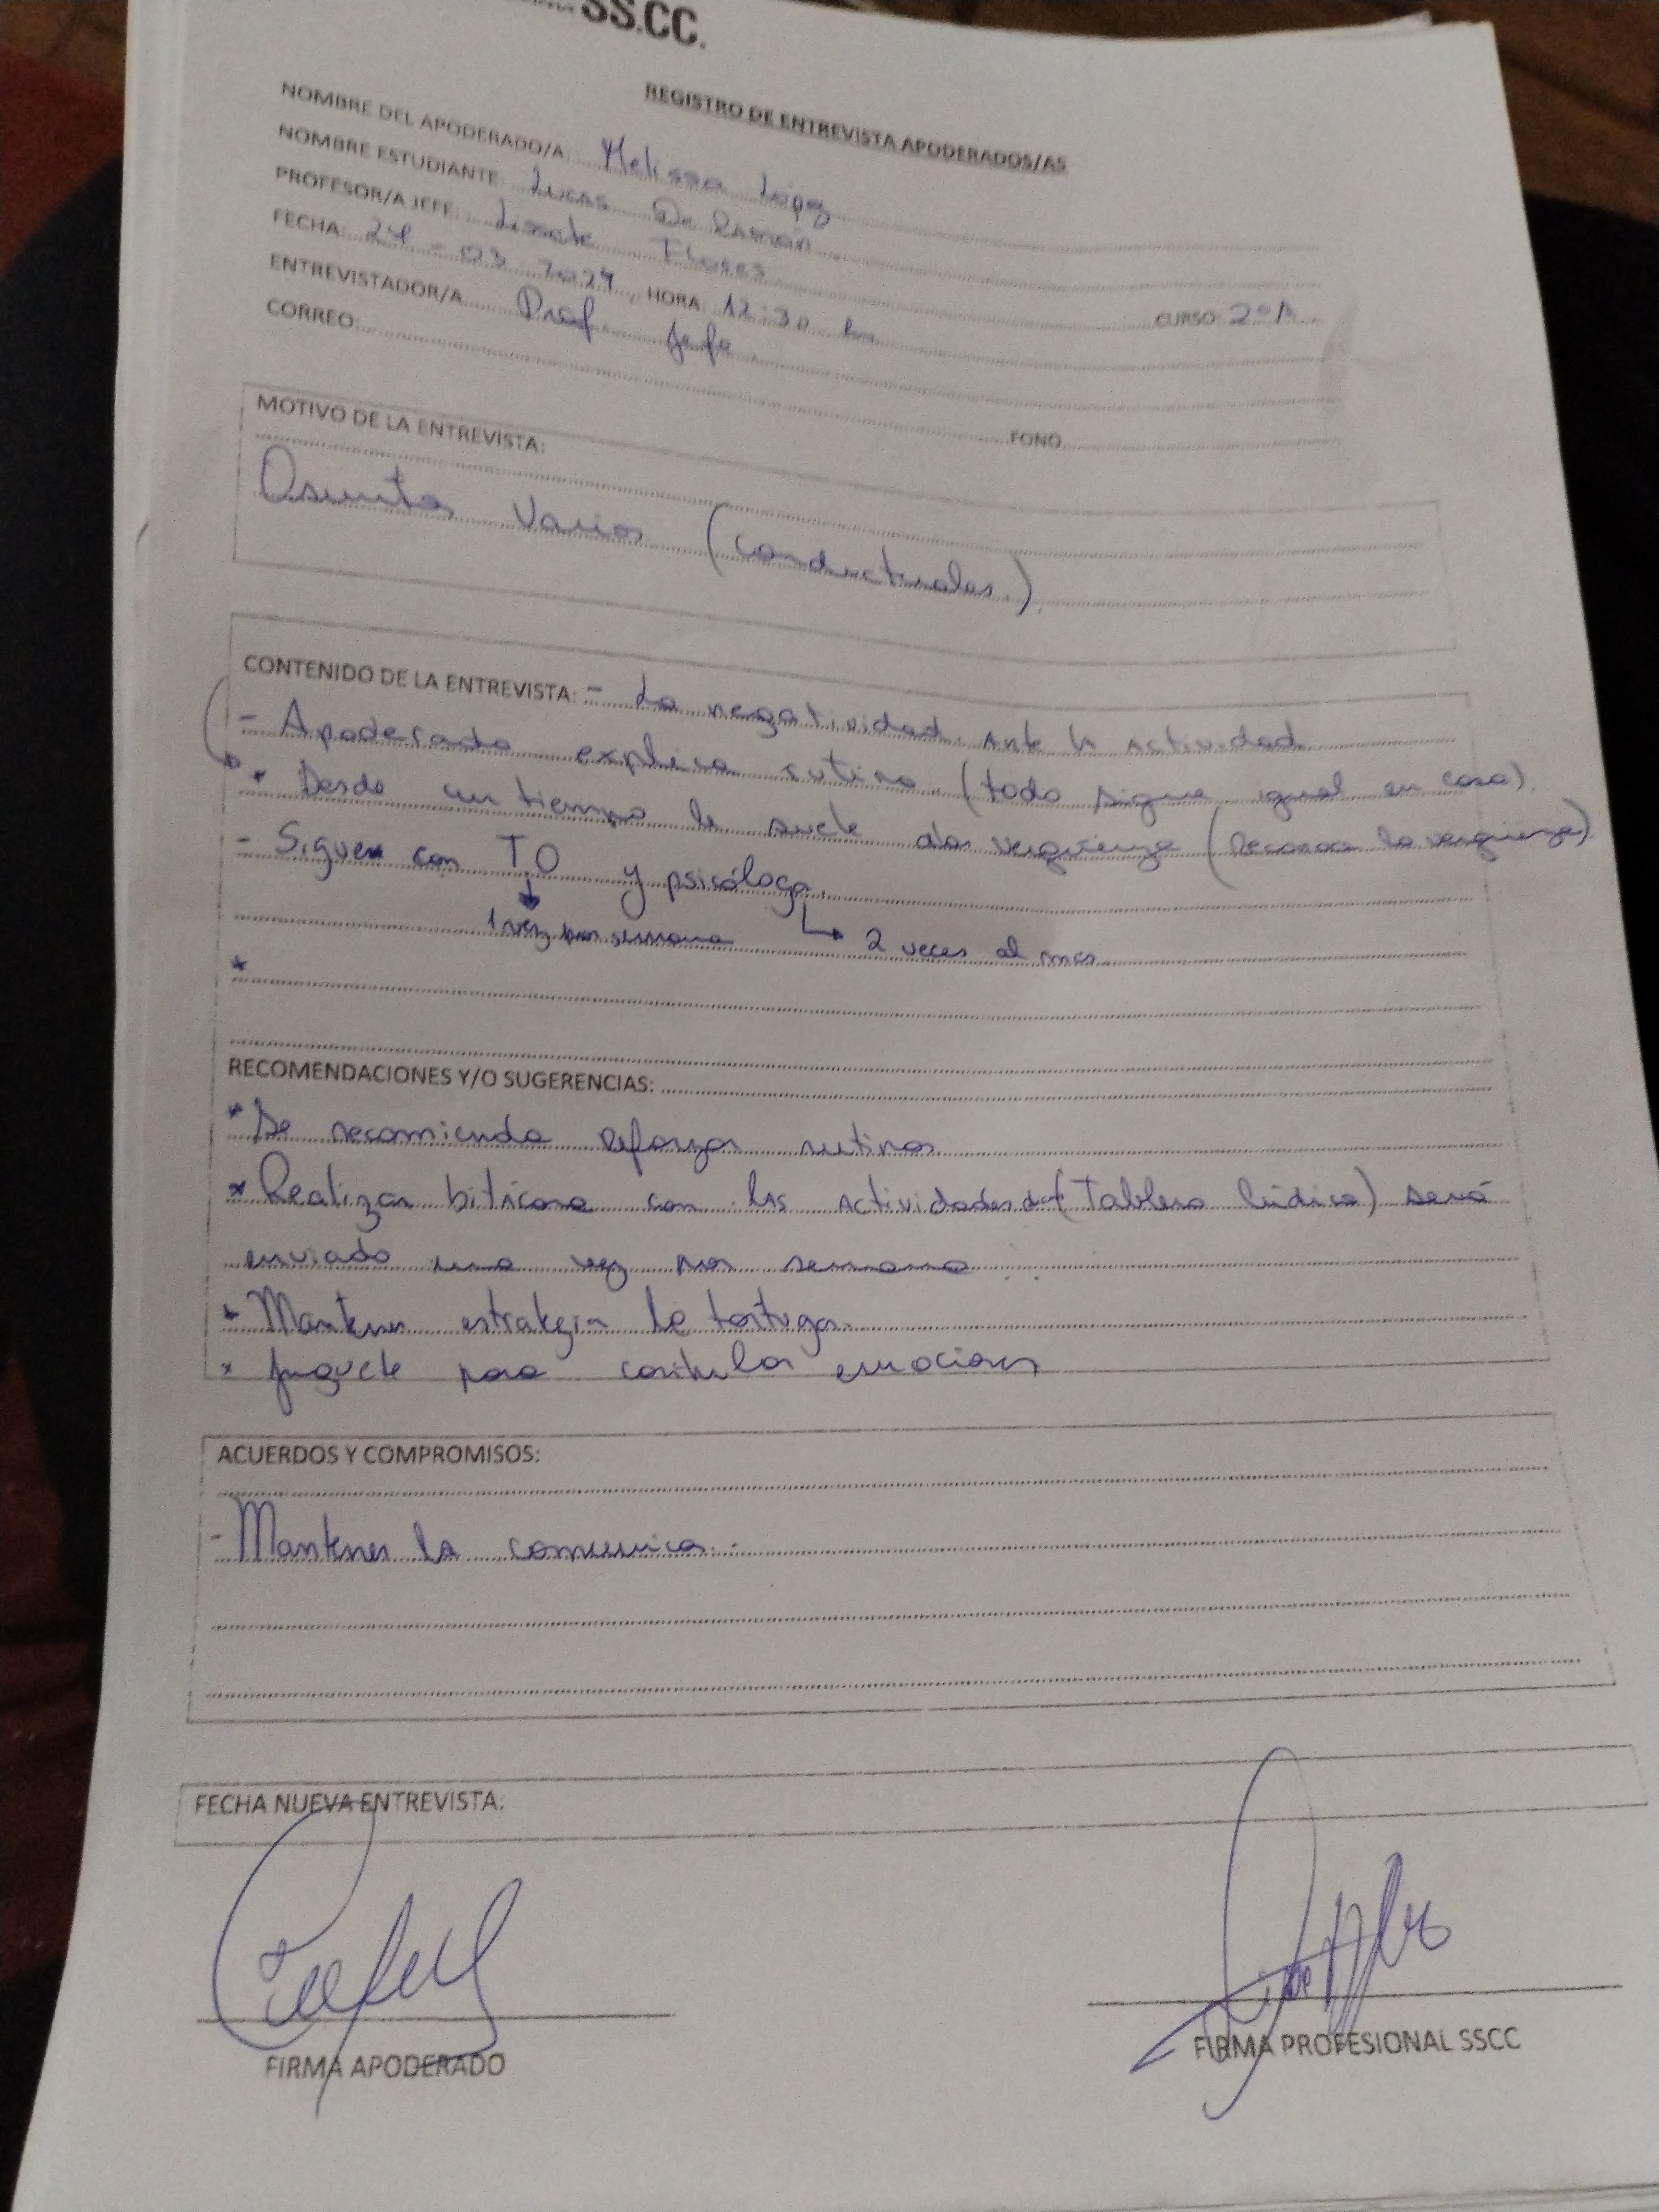 SS.CC.
REGISTRO DE ENTREVISTA APODERADOS/AS
NOMBRE DEL APODERADO/A: Melissa López
NOMBRE ESTUDIANTE: Lucas De Ramón
PROFESOR/A JEFE: Lissete Flores
FECHA: 24 - 03 2024, HORA: 12:30 hr CURSO: 2°A
ENTREVISTADOR/A Prof Jefe
CORREO: FONO
MOTIVO DE LA ENTREVISTA:
Asuntos Varios (conductuales)
CONTENIDO DE LA ENTREVISTA: - La negatividad. Ante la actividad
- Apoderado explica rutina. (todo sigue igual en casa).
* Desde un tiempo le suele dar vergüenza (Reconoce la vergüenza)
- Siguen con TO y psicóloga.
1 vez por semana 2 veces al mes.
*
RECOMENDACIONES Y/O SUGERENCIAS:
* Se recomienda reforzar rutinas
* Realizar bitácora con las actividades (Tablero lúdico) será
enviado una vez por semana
* Mantener estrategia de tortuga.
* Juguete para controlar emociones
ACUERDOS Y COMPROMISOS:
- Mantener la comunica.-
FECHA NUEVA ENTREVISTA.
FIRMA APODERADO
FIRMA PROFESIONAL SSCC